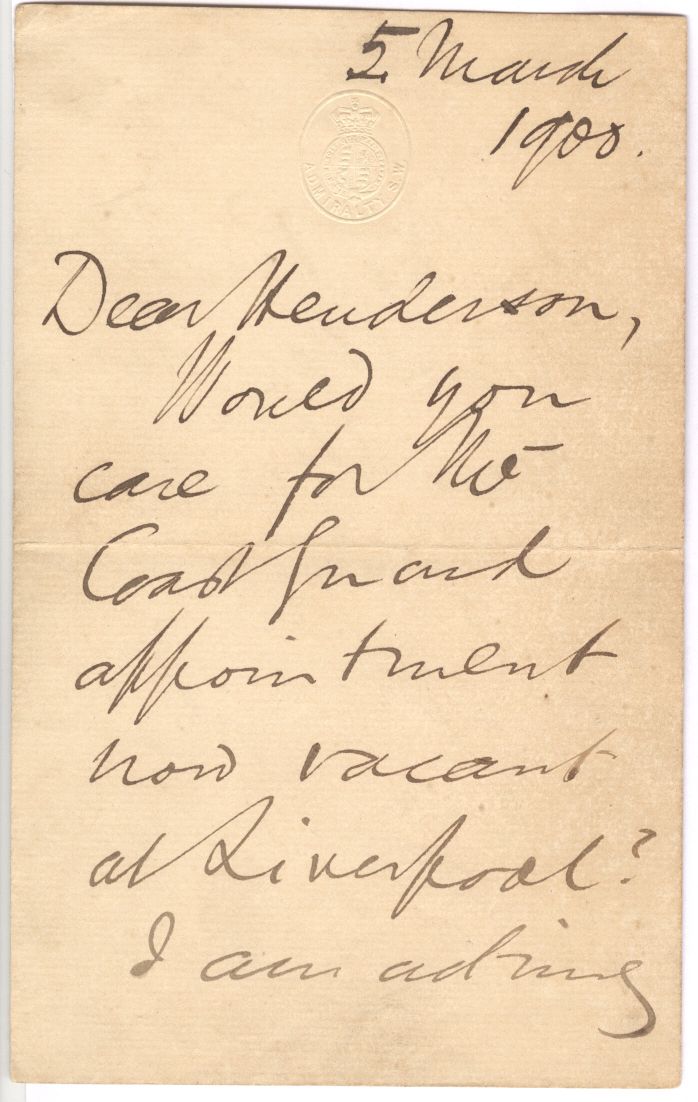 5 March
1900.
ADMIRALTY S.W
Dear Henderson,
Would you
care for the
Coast Guard
appointment
now vacant
at Liverpool?
I am